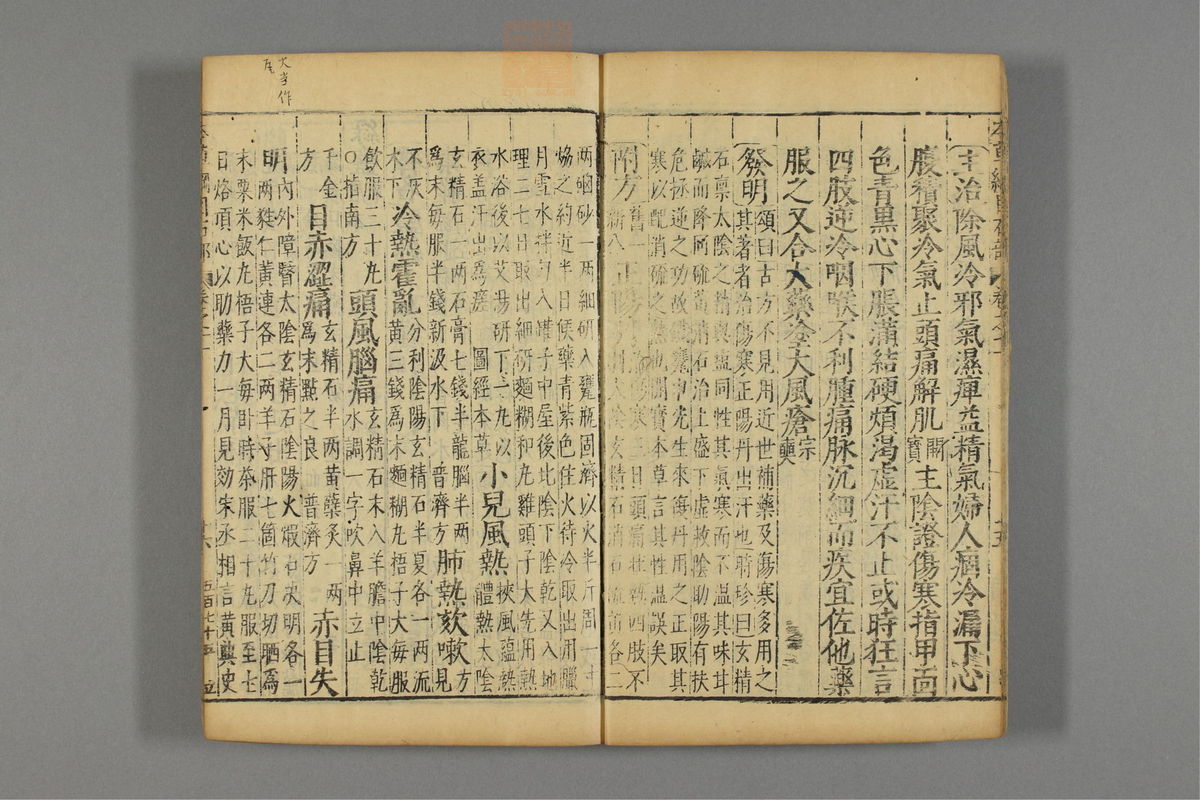 主治除風冷邪氣濕痺益精氣婦人痼冷漏下心
腹積聚冷氣止頭痛解肌開寶主陰證傷寒指甲面
色青黑心下脹滿結硬煩渴虛汗不止或時狂言
四肢逆冷咽喉不利腫痛脉沉細而疾宜佐他藥
服之又合大藥塗大風瘡宗奭
發明頌曰古方不見用近世補藥及傷寒多用之
其著者治傷寒正陽丹出汗也時珍曰玄精
石禀太陰之精與鹽同性其氣寒而不温其味甘
鹹而降同硫黄消石治上盛下虛救陰助陽有扶
危拯逆之功故鐵甕申先生來復丹用之正取其
寒以配消硫之開寶本草言其性温誤矣
附方舊一新八正陽三日頭痛壯熱四肢不
太陰玄精石消石硫黄各二
两硇砂一两細研入甆瓶固濟以火半斤周一寸
熁之約近半日候藥青紫色住火待冷取出用臘
月雪水拌入罐子中屋後北陰下陰乾又入地
理二七日取出細研麵糊和丸雞頭子大先用熱
水浴後以艾湯研下一丸以
衣盖汗出爲瘥圖經本草小兒風熱挾風蘊熱
體熱太陰
玄精石一两石膏七錢半龍腦半两
爲末每服半錢新汲水下普濟方肺熱欬嗽方見
不灰
木下冷熱霍亂分利陰陽玄精石半夏各一两流
黄三錢爲末麵糊丸梧子大每服
飲服三十丸頭風腦痛玄精石末入羊膽中陰乾
○指南方水調一字吹鼻中立止
千金
方目赤澀痛玄精石半两黄蘗炙一两
爲末點之良普濟方赤目失
明内外障瞖太陰玄精石陰陽火煅石决明各一
两蕤仁黄連各二两羊子肝七箇竹刀切晒爲
末粟米飯丸梧子大每卧時茶服二十丸服至七
日烙頂心以助藥力一月見効宋丞相言黄典史
大字作
五百七十五